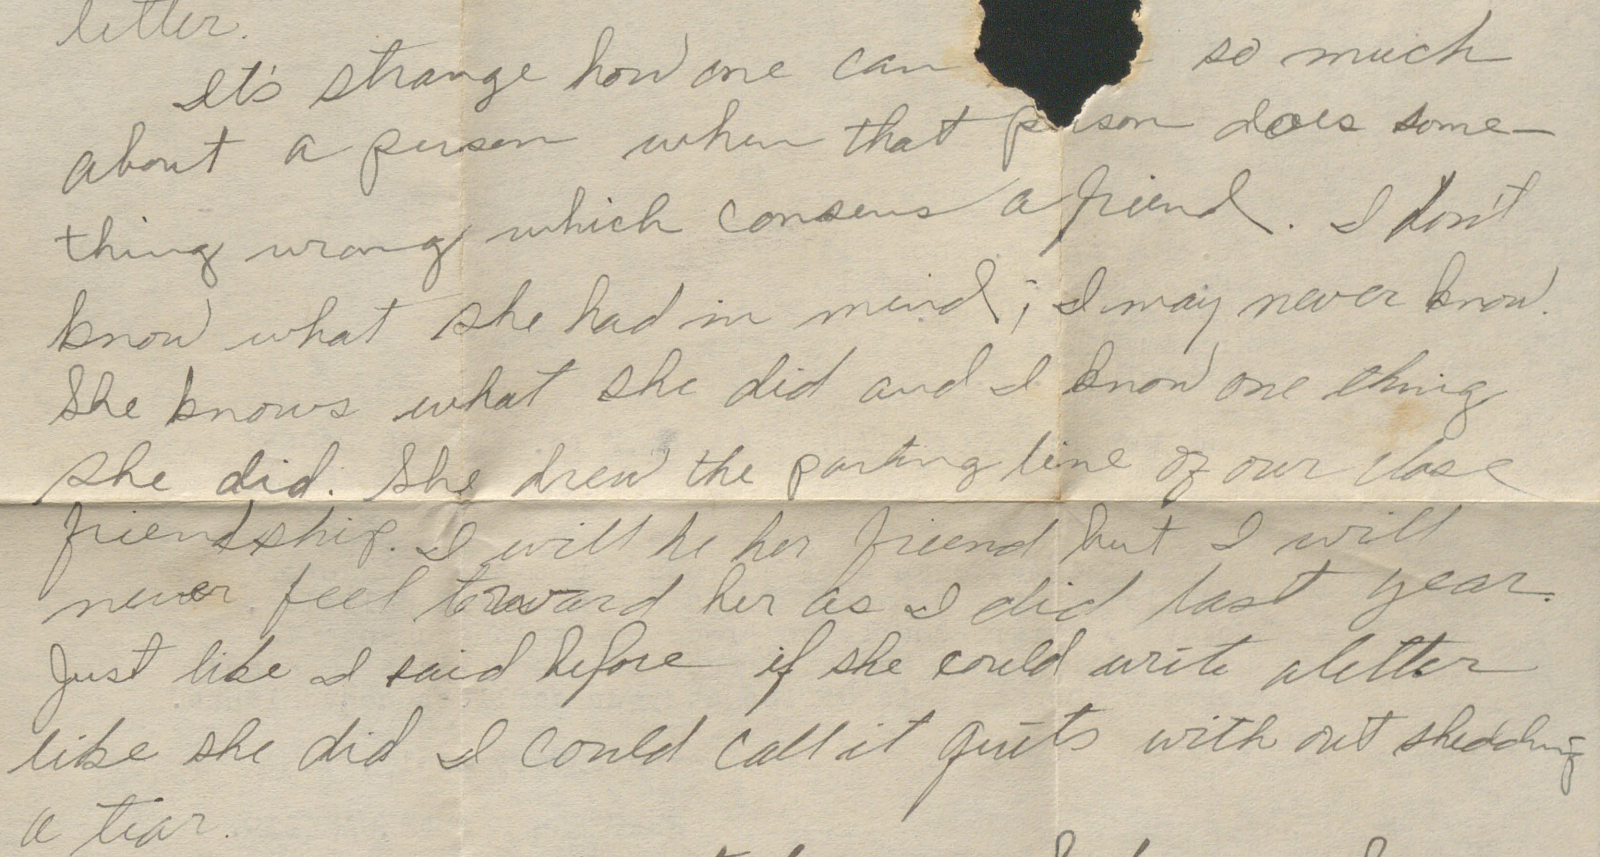 letter.
It's strange how one can so much
about a person when that person does some-
thing wrong which consens a friend. I don't
know what she had in mind; I may never know.
She knows what she did and I know one thing
she did. She drew the parting line of our close
friendship. I will be her friend but I will
never feel toward her as I did last year.
Just like I said before if she could write a letter
like she did I could call it quits with out shedding
a tear.